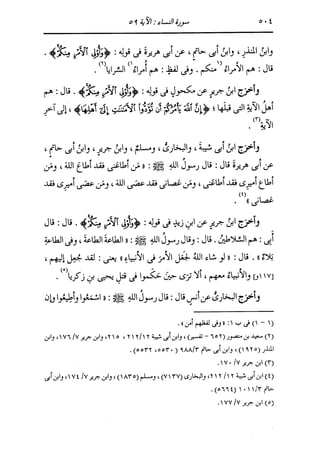 ٥٠٤
سورة النساء : الآية ٥٩
وابنُ المنذرِ ، وابنُ أبى حاتمٍ ، عن أبى هريرةَ فى قولِه : ﴿وَأُوْلِى ٱلْأَمْرِ مِنكُمْ﴾ .
قال : هم الأمراءُ(١) منكم . وفى لفظٍ : هم أُمراءُ(١) السَّرايا(٢) .
وأخرَج ابنُ جريرٍ عن مكحولٍ فى قولِه : ﴿وَأُوْلِى ٱلْأَمْرِ مِنكُمْ﴾ . قال : هم
أهلُ الآيةِ التى قبلَها ؛ ﴿إِنَّ ٱللَّهَ يَأْمُرُكُمْ أَن تُؤَدُّوا۟ ٱلْأَمَٰنَٰتِ إِلَىٰٓ أَهْلِهَا﴾ ، إلى آخرِ
الآيةِ(٣) .
وأخرَج ابنُ أبى شيبةَ ، والبخارىُّ ، ومسلمٌ ، وابنُ جريرٍ ، وابنُ أبى حاتمٍ ،
عن أبى هريرةَ قال : قال رسولُ اللهِ ﷺ : « مَن أطاعَنى فقد أطاع اللهَ ، ومَن
أطاع أميرى فقد أطاعَنى ، ومَن عَصانى فقد عصَى اللهَ ، ومَن عصَى أميرى فقد
عَصانى »(٤) .
وأخرَج ابنُ جريرٍ عن ابنِ زيدٍ فى قولِه : ﴿وَأُوْلِى ٱلْأَمْرِ مِنكُمْ﴾ . قال : قال
أُبىٌّ : هم السَّلاطينُ . قال : وقال رسولُ اللهِ ﷺ : « الطاعةَ الطاعةَ ، وفى الطاعةِ
بَلاءٌ » . قال : « لو شاء اللهُ لجعَل الأمرَ فى الأنبياءِ » يعنى : لقد جُعِل إليهم ،
[١١٧و] والأنبياءُ معهم ، ألا ترَى حينَ حكَموا فى قتلِ يحيى بنِ زكريا(٥) .
وأخرَج البخارىُّ عن أنسٍ قال : قال رسولُ اللهِ ﷺ : « اسْمَعُوا وأطيعُوا وإن
(١ - ١) فى ب ١ : « وفى لفظهم أمن » .
(٢) سعيد بن منصور (٦٥٢ - تفسير) ، وابن أبى شيبة ١٢/ ٢١٢، ٢١٥، وابن جرير ٧/ ١٧٦، وابن
المنذر (١٩٢٥) ، وابن أبى حاتم ٣/ ٩٨٨ (٥٥٣٠، ٥٥٣٢) .
(٣) ابن جرير ٧/ ١٧٠.
(٤) ابن أبى شيبة ١٢/ ٢١٢، والبخارى (٧١٣٧) ، ومسلم (١٨٣٥) ، وابن جرير ٧/ ١٧٤، وابن أبى
حاتم ٣/ ١٠١١ (٥٦٦٤) .
(٥) ابن جرير ٧/ ١٧٧.